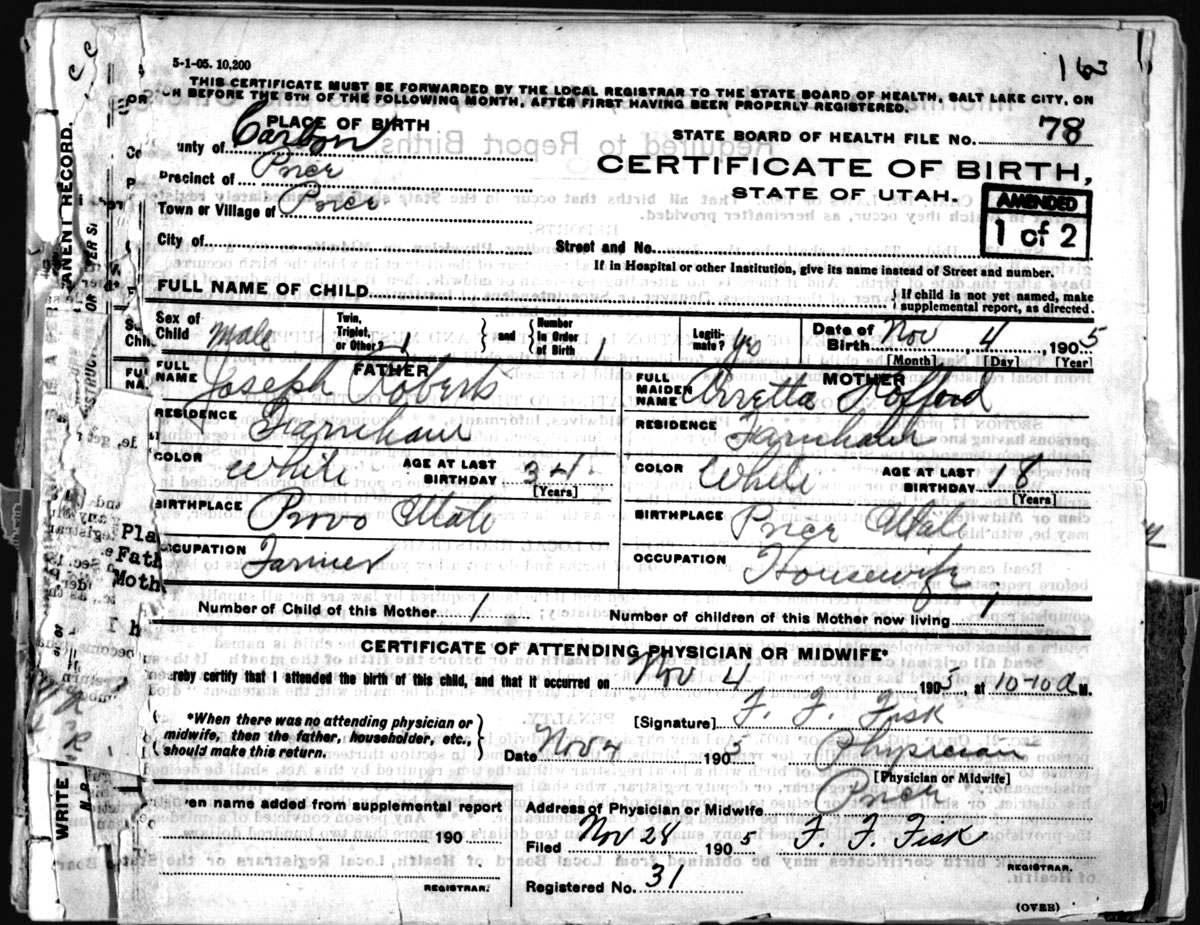 5-1-05. 10,200
THIS CERTIFICATE MUST BE FORWARDED BY THE LOCAL REGISTRAR TO THE STATE BOARD OF HEALTH, SALT LAKE CITY, ON
OR BEFORE THE 5TH OF THE FOLLOWING MONTH, AFTER FIRST HAVING BEEN PROPERLY REGISTERED.
PLACE OF BIRTH
STATE BOARD OF HEALTH FILE No. 78
unty of Carbon
CERTIFICATE OF BIRTH,
STATE OF UTAH.
Precinct of Price
AMENDED
1 of 2
Town or Village of Price
City of
Street and No.
If in Hospital or other Institution, give its name instead of Street and number.
FULL NAME OF CHILD
} If child is not yet named, make supplemental report, as directed.
Sex of Child Male
Twin, Triplet, or Other?
} and { Number in Order of Birth 1
Legiti-mate? yes
Date of Birth Nov 4, 1905
[Month] [Day] [Year]
FATHER
FULL NAME Joseph Roberts
RESIDENCE Farnham
COLOR White
AGE AT LAST BIRTHDAY 34
[Years]
BIRTHPLACE Provo Utah
OCCUPATION Farmer
MOTHER
FULL MAIDEN NAME Orretta Kofford
RESIDENCE Farnham
COLOR White
AGE AT LAST BIRTHDAY 18
[Years]
BIRTHPLACE Price Utah
OCCUPATION Housewife
Number of Child of this Mother 1
Number of children of this Mother now living 1
CERTIFICATE OF ATTENDING PHYSICIAN OR MIDWIFE*
ereby certify that I attended the birth of this child, and that it occurred on Nov 4 1905, at 10-10 a M.
{ *When there was no attending physician or midwife, then the father, householder, etc., should make this return. }
[Signature] F. F. Fisk
Date Nov 4 1905
Physician
[Physician or Midwife]
en name added from supplemental report
190
REGISTRAR.
Address of Physician or Midwife Price
Filed Nov 28 1905 F. F. Fisk
REGISTRAR.
Registered No. 31
(OVER)
ANENT RECORD.
WRITE
Pla
Fath
Moth
I h